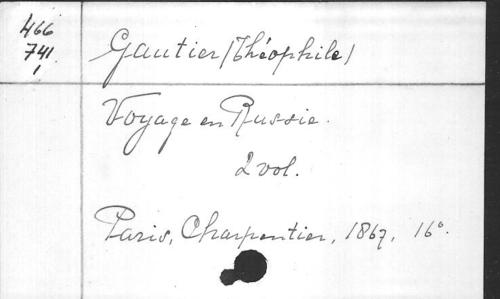 466
741
1
Gautier (Théophile)
Voyage en Russie.
2 vol.
Paris, Charpentier, 1867, 16°.